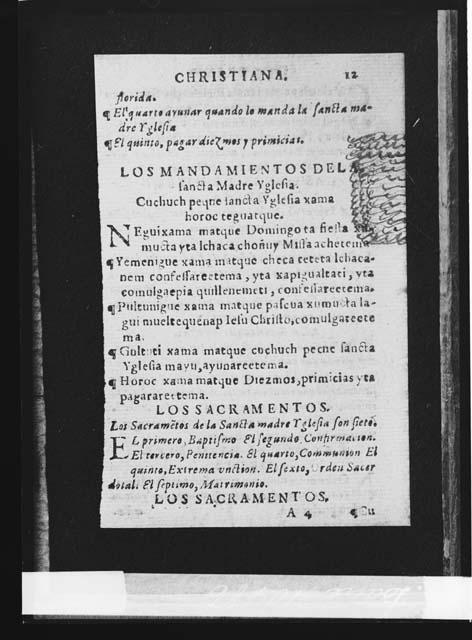 CHRISTIANA. 12
florida.
¶ El quarto ayunar quando lo manda la sancta ma-
dre Yglesia
¶ El quinto, pagar diezmos y primicias.
LOS MANDAMIENTOS DE LA
sancta Madre Yglesia.
Cuchuch peqne sancta Yglesia xama
horoc teguatque.
NEguixama matque Domingo ta fiesta xu
mucta yta lchaca choñuy Missa achetema
¶ Yemenigue xama matque checa teteta lchaca-
nem confessareetema, yta xapigualtati, yta
comulgaepia quillenemeti, confessareetema.
¶ Pultunigue xama matque pascua xumucta la-
gui mueltequenap Iesu Christo, comulgareete
ma.
¶ Gultuti xama matque cuchuch pecne sancta
Yglesia mayu, ayunareetema.
¶ Horoc xama matque Diezmos, primicias yta
pagarareetema.
LOS SACRAMENTOS.
Los Sacramētos de la Sancta madre Yglesia son siete.
EL primero, Baptismo El segundo, Confirmacion.
El tercero, Penitencia. El quarto, Communion El
quinto, Extrema vnction. El sexto, Orden Sacer
dotal. El septimo, Matrimonio.
LOS SACRAMENTOS.
A 4 ¶ Cu